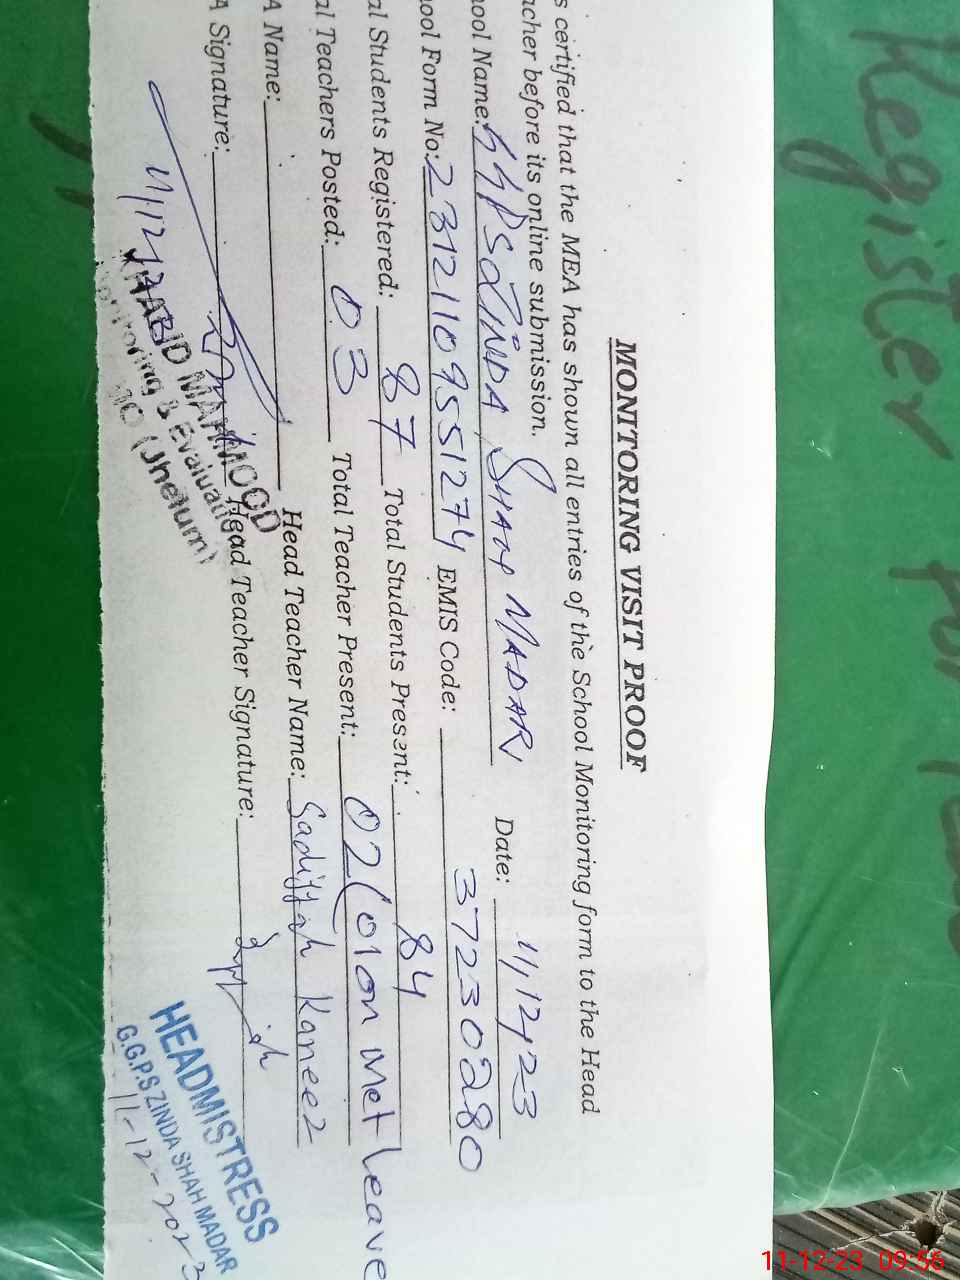 Register for
MONITORING VISIT PROOF
s certified that the MEA has shown all entries of the School Monitoring form to the Head
acher before its online submission.
ool Name: GGPS ZINDA SHAH MADAR Date: 11/12/23
ool Form No: 23121109551274 EMIS Code: 37230280
al Students Registered: 87 Total Students Present: 84
al Teachers Posted: 03 Total Teacher Present: 02 (01 on Met Leave
A Name: Head Teacher Name: Sadiffah Kaneez
A Signature: Head Teacher Signature:
11/12/23
MAHMOOD
Monitoring & Evaluation
(Jhelum)
HEADMISTRESS
G.G.P.S ZINDA SHAH MADAR
11-12-2023
11-12-23 09:56